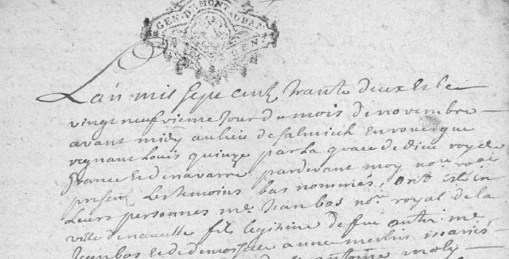 GEN. DE MONTAUBAN
L'an mil sept cent trante deux et le
vingt neufvieme jour du mois de novembre
avant midy au lieu de salmiech en rouergue
regnant Louis quinze par la grace de dieu roy de
france et de navarre pardevant moy nore roial
presents les temoins bas nommés, ont esté en
leurs personnes me jean bos nre royal de la
ville de naucelle fils legitime de feu autre me
jean bos et de demoiselle anne mariés
antoine moly